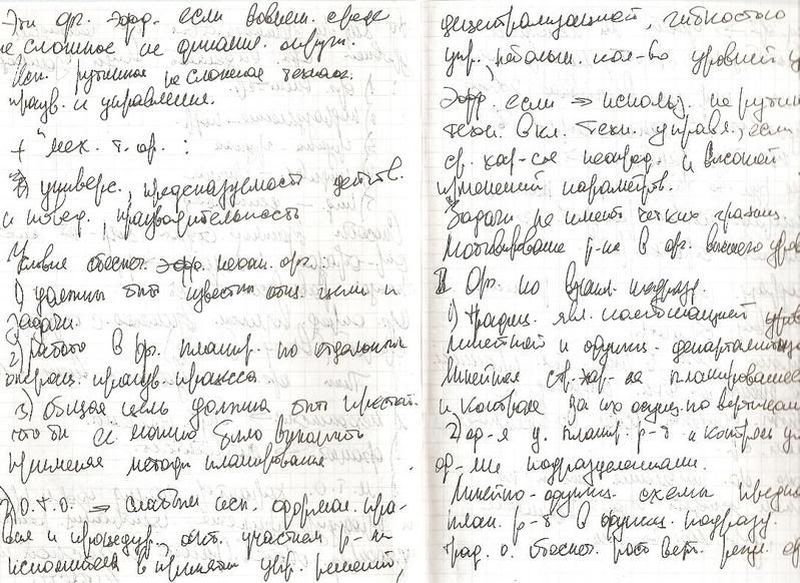 Эти орг. эфф. если вовнеш. среде
не сложное не динамич. окруж.
Исп. рутинное не сложная технол.
произв. и управления.
+ "мех. т. ор. :
универс., предсказуемость действ.
и повед., производительность
Условия обеспеч. эфф. механ. орг.
1) должны быть известны общ. цели и
задачи
2) работа в орг. планир. по отдельным
операц. произв. процесса
3) общая цель должна быть простой
что бы её можно было выполнить
применяя методы планирования
О.т.о. => слабым исп. формал. пра-
вил и процедур, акт. участием р-ка
исполнителя в принятии упр. решений,
децентрализацией, гибкостью
упр., небольш. кол-во уровней у
Эфф. если => использ. не рутин
техн. вкл. техн. управл., если
ср. хар-ся неопред. и высокой
изменений параметров.
Задачи не имеют четких границ.
Мотивирование р-ка в орг. высокого уров
II Орг по взаим. подразд.
1) Традиц. явл. комбинацией уров
линейной и функц. департаментиза
Линейная стр. хар-ся планирование
и контроле за их осущ. по вертикали
2) ф-я у. планир. р-т и контроль у
ф-ми подразделениями.
Линейно-функц. схемы предпо
план. р-т в функц. подразд.
трад. о. обеспеч. рост верт.